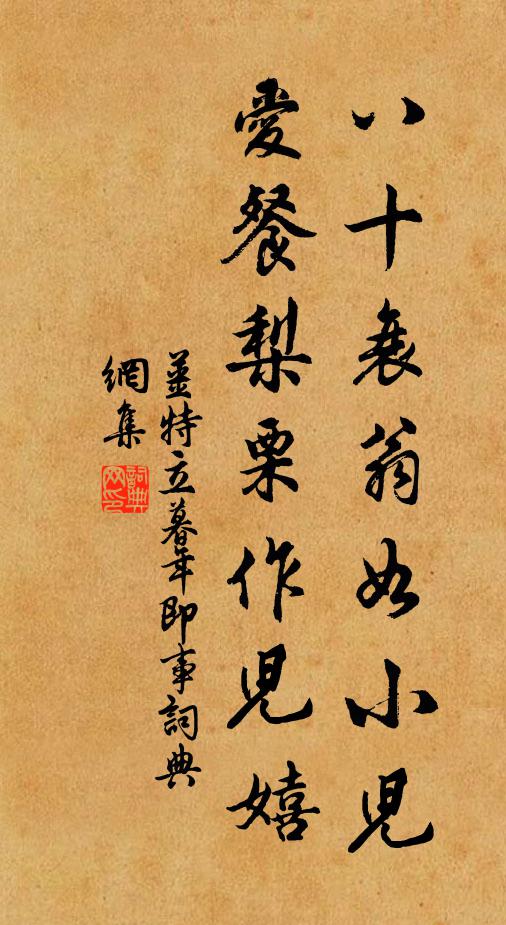 八十衰翁如小兒
愛餐梨栗作兒嬉
姜特立暮年即事詞典
網集
詞典網印